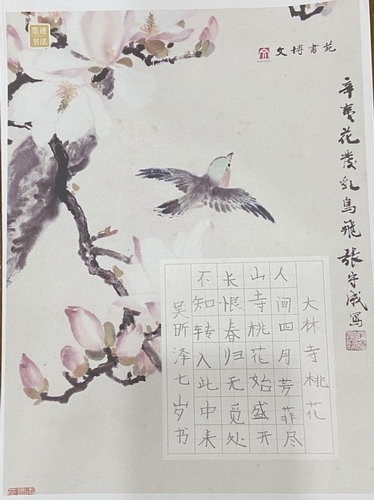 文博書苑
辛夷花發乳鳥飛 張守成寫
大林寺桃花
人间四月芳菲尽
山寺桃花始盛开
长恨春归无觅处
不知转入此中来
吴昕泽七岁书